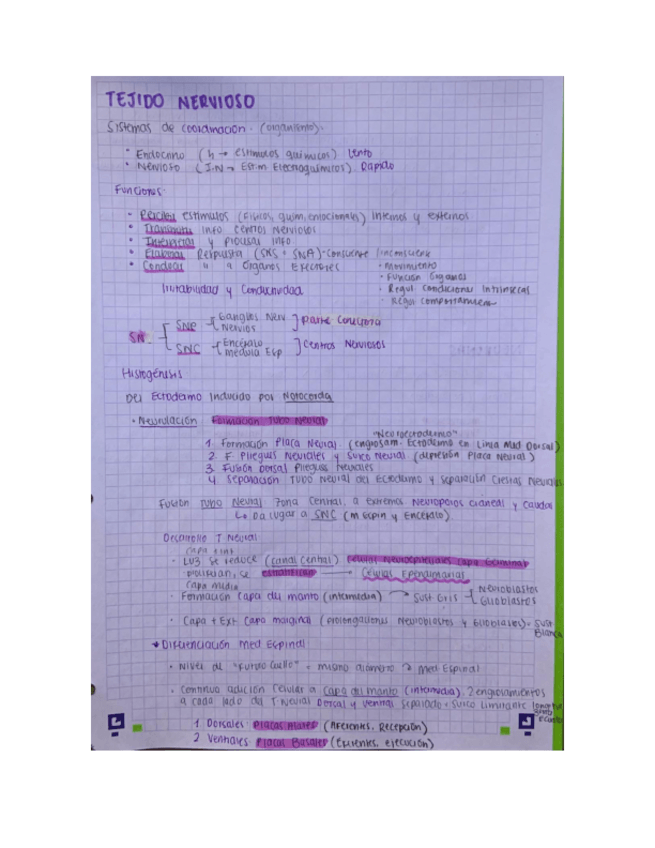 TEJIDO NERVIOSO
Sistemas de coordinación. (organismo).
• Endocrino (h → estímulos químicos) Lento
• Nervioso (I.N → Estim Electroquímicos). Rápido
Funciones:
• Percibir estímulos (Físicos, quím, emocionales) Internos y externos
• Transmitir info centros Nerviosos
• Integrarlas y procesar info
• Elaborar Respuesta (SNS + SNA) - Consciente / inconsciente
• Conducir " a Órganos Efectores
• Movimiento
• Función Órganos
• Regul condiciones Intrínsecas
• Regul comportamiento
Irritabilidad y Conductividad
SN.
SNP
Ganglios Nerv
Nervios
Parte Conectora
SNC
Encéfalo
médula Esp
Centros Nerviosos
Histogénesis
Del Ectodermo Inducido por Notocorda
• Neurulación Formación Tubo Neural
"Neuroectodermo"
1. Formación Placa Neural. (engrosam. Ectodermo en Linea Med Dorsal)
2. F. Pliegues Neurales y Surco Neural (depresión Placa Neural)
3. Fusión dorsal Pliegues Neurales
4. Separación Tubo Neural del Ectodermo y separación Crestas Neurales
Fusión Tubo Neural Zona Central, a extremos Neuroporos craneal y Caudal
↳ Da lugar a SNC (m Espin y Encéfalo)
Desarrollo T Neural
Capa + int
• Luz se reduce (canal central) Células Neuroepiteliales capa Germinal
proliferan, se estratifican → Células Ependimarias
Capa media
• Formación Capa del manto (intermedia) → Sust Gris
Neuroblastos
Glioblastos
• Capa + Ext Capa marginal (prolongaciones Neuroblastos y Glioblastos) - Sust Blanca
Diferenciación Med Espinal
• Nivel de "Futuro Cuello" = mismo diámetro → Med Espinal
• Continua adición Celular a Capa del manto (intermedia). 2 engrosamientos
a cada lado del T Neural Dorsal y Ventral Separado = Surco Limitante
1 Dorsales Placas Alares (Aferentes, Recepción)
2 Ventrales Placas Basales (Eferentes, ejecución)